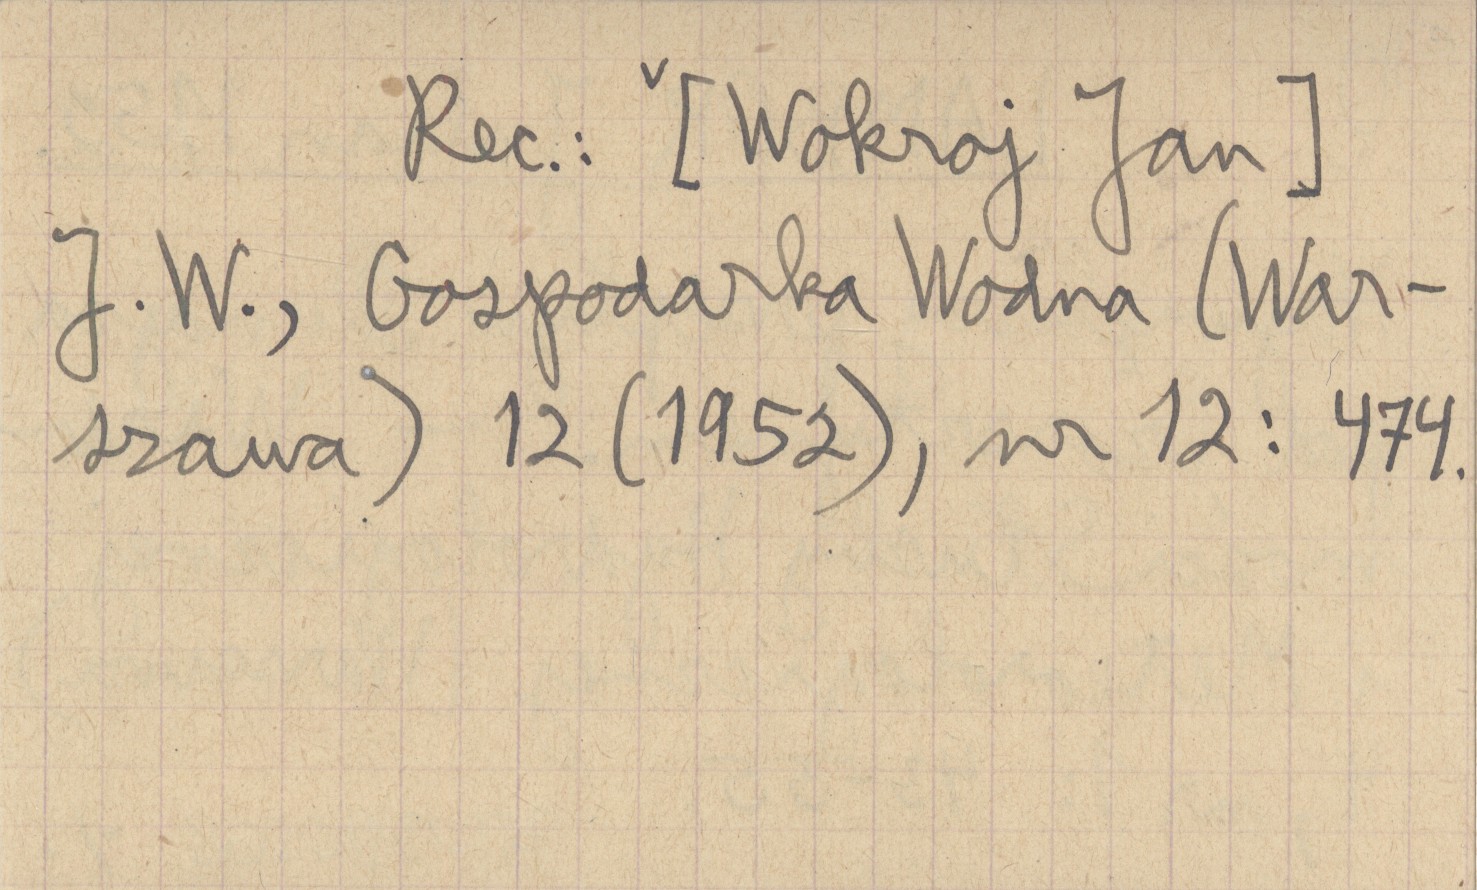 Rec.: ˅[Wokroj Jan]
J. W., Gospodarka Wodna (War-
szawa) 12 (1952), nr 12: 474.